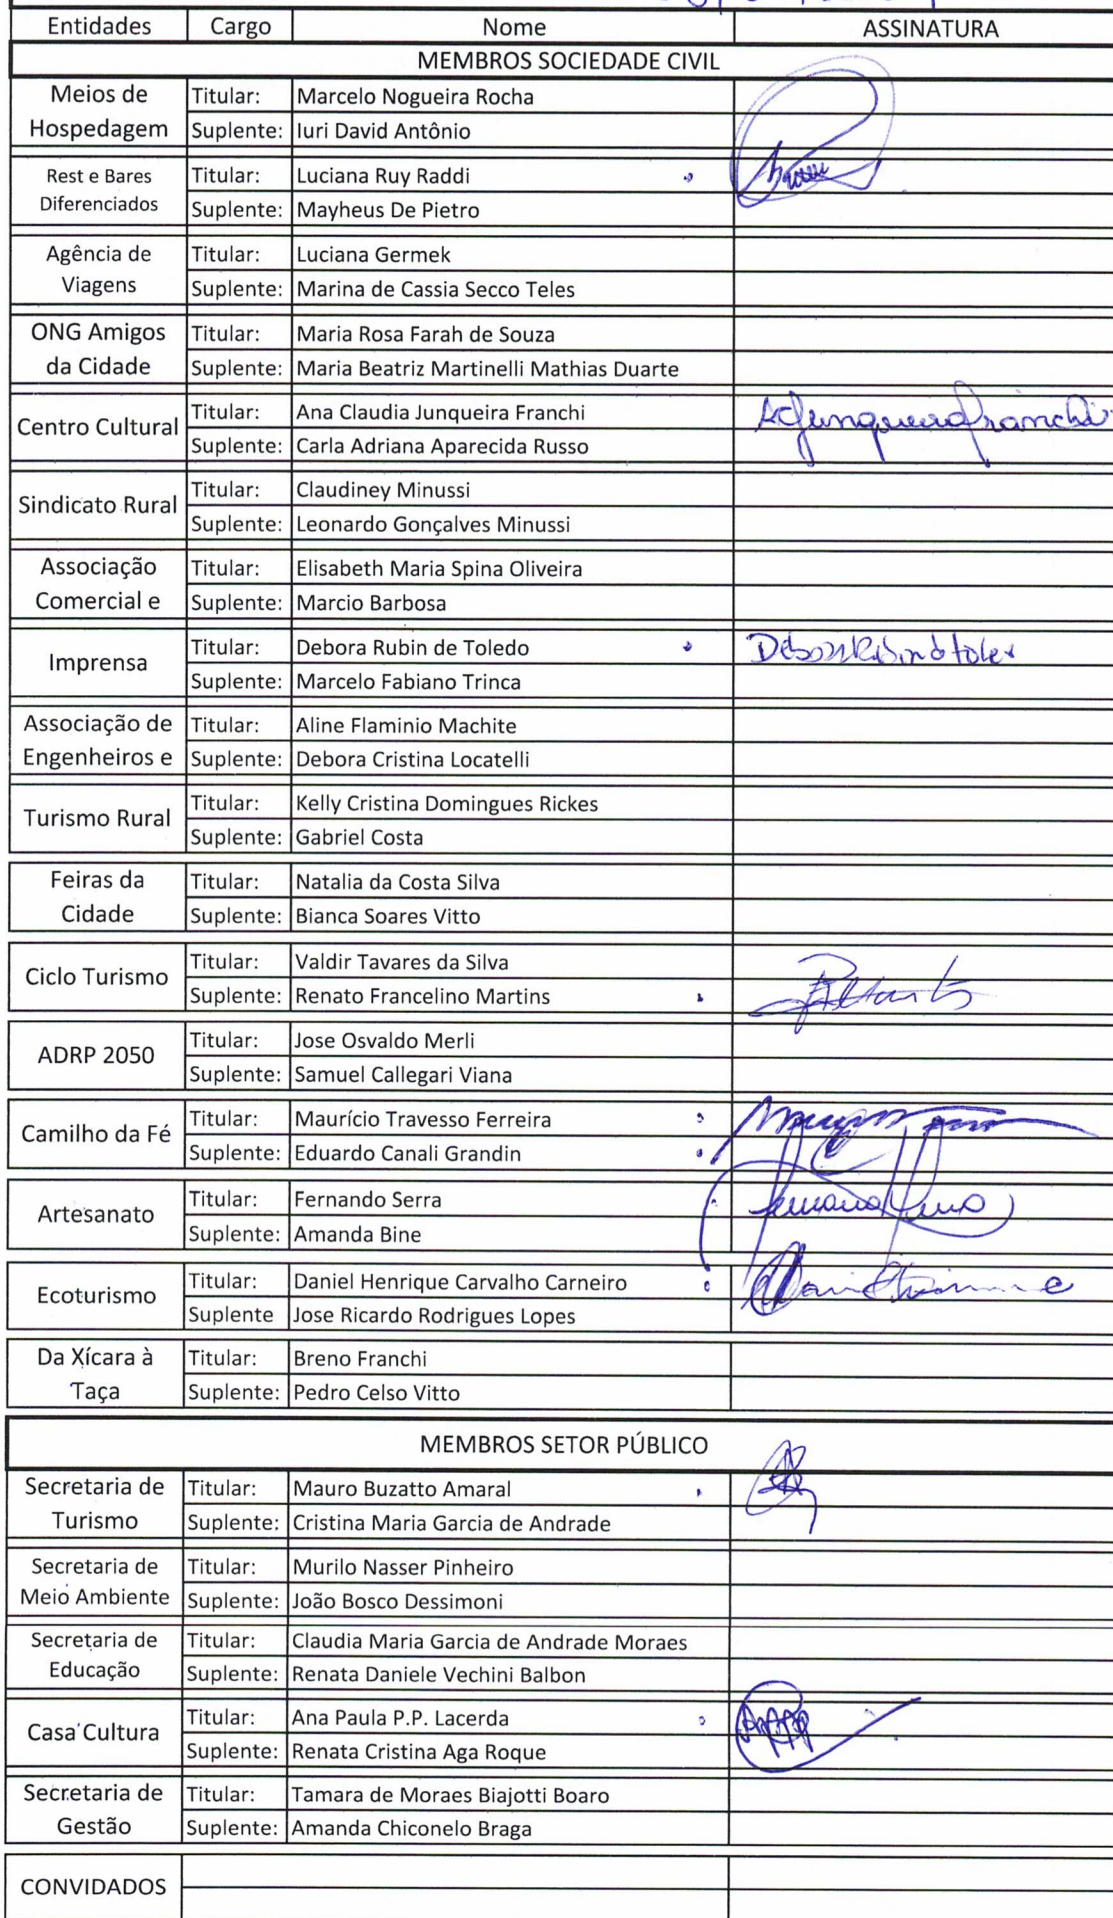 Entidades Cargo Nome ASSINATURA
MEMBROS SOCIEDADE CIVIL
Meios de Hospedagem
Titular: Marcelo Nogueira Rocha
Suplente: Iuri David Antônio
Rest e Bares
Diferenciados
Titular: Luciana Ruy Raddi
Suplente: Mayheus De Pietro
Agência de
Viagens
Titular: Luciana Germek
Suplente: Marina de Cassia Secco Teles
ONG Amigos
da Cidade
Titular: Maria Rosa Farah de Souza
Suplente: Maria Beatriz Martinelli Mathias Duarte
Centro Cultural
Titular: Ana Claudia Junqueira Franchi Acjunqueirafranchi
Suplente: Carla Adriana Aparecida Russo
Sindicato Rural
Titular: Claudiney Minussi
Suplente: Leonardo Gonçalves Minussi
Associação
Comercial e
Titular: Elisabeth Maria Spina Oliveira
Suplente: Marcio Barbosa
Imprensa
Titular: Debora Rubin de Toledo
Suplente: Marcelo Fabiano Trinca
Associação de
Engenheiros e
Titular: Aline Flaminio Machite
Suplente: Debora Cristina Locatelli
Turismo Rural
Titular: Kelly Cristina Domingues Rickes
Suplente: Gabriel Costa
Feiras da
Cidade
Titular: Natalia da Costa Silva
Suplente: Bianca Soares Vitto
Ciclo Turismo
Titular: Valdir Tavares da Silva
Suplente: Renato Francelino Martins
ADRP 2050
Titular: Jose Osvaldo Merli
Suplente: Samuel Callegari Viana
Camilho da Fé
Titular: Maurício Travesso Ferreira
Suplente: Eduardo Canali Grandin
Artesanato
Titular: Fernando Serra
Suplente: Amanda Bine
Ecoturismo
Titular: Daniel Henrique Carvalho Carneiro
Suplente Jose Ricardo Rodrigues Lopes
Da Xícara à
Taça
Titular: Breno Franchi
Suplente: Pedro Celso Vitto
MEMBROS SETOR PÚBLICO
Secretaria de
Turismo
Titular: Mauro Buzatto Amaral
Suplente: Cristina Maria Garcia de Andrade
Secretaria de
Meio Ambiente
Titular: Murilo Nasser Pinheiro
Suplente: João Bosco Dessimoni
Secretaria de
Educação
Titular: Claudia Maria Garcia de Andrade Moraes
Suplente: Renata Daniele Vechini Balbon
Casa Cultura
Titular: Ana Paula P.P. Lacerda
Suplente: Renata Cristina Aga Roque
Secretaria de
Gestão
Titular: Tamara de Moraes Biajotti Boaro
Suplente: Amanda Chiconelo Braga
CONVIDADOS